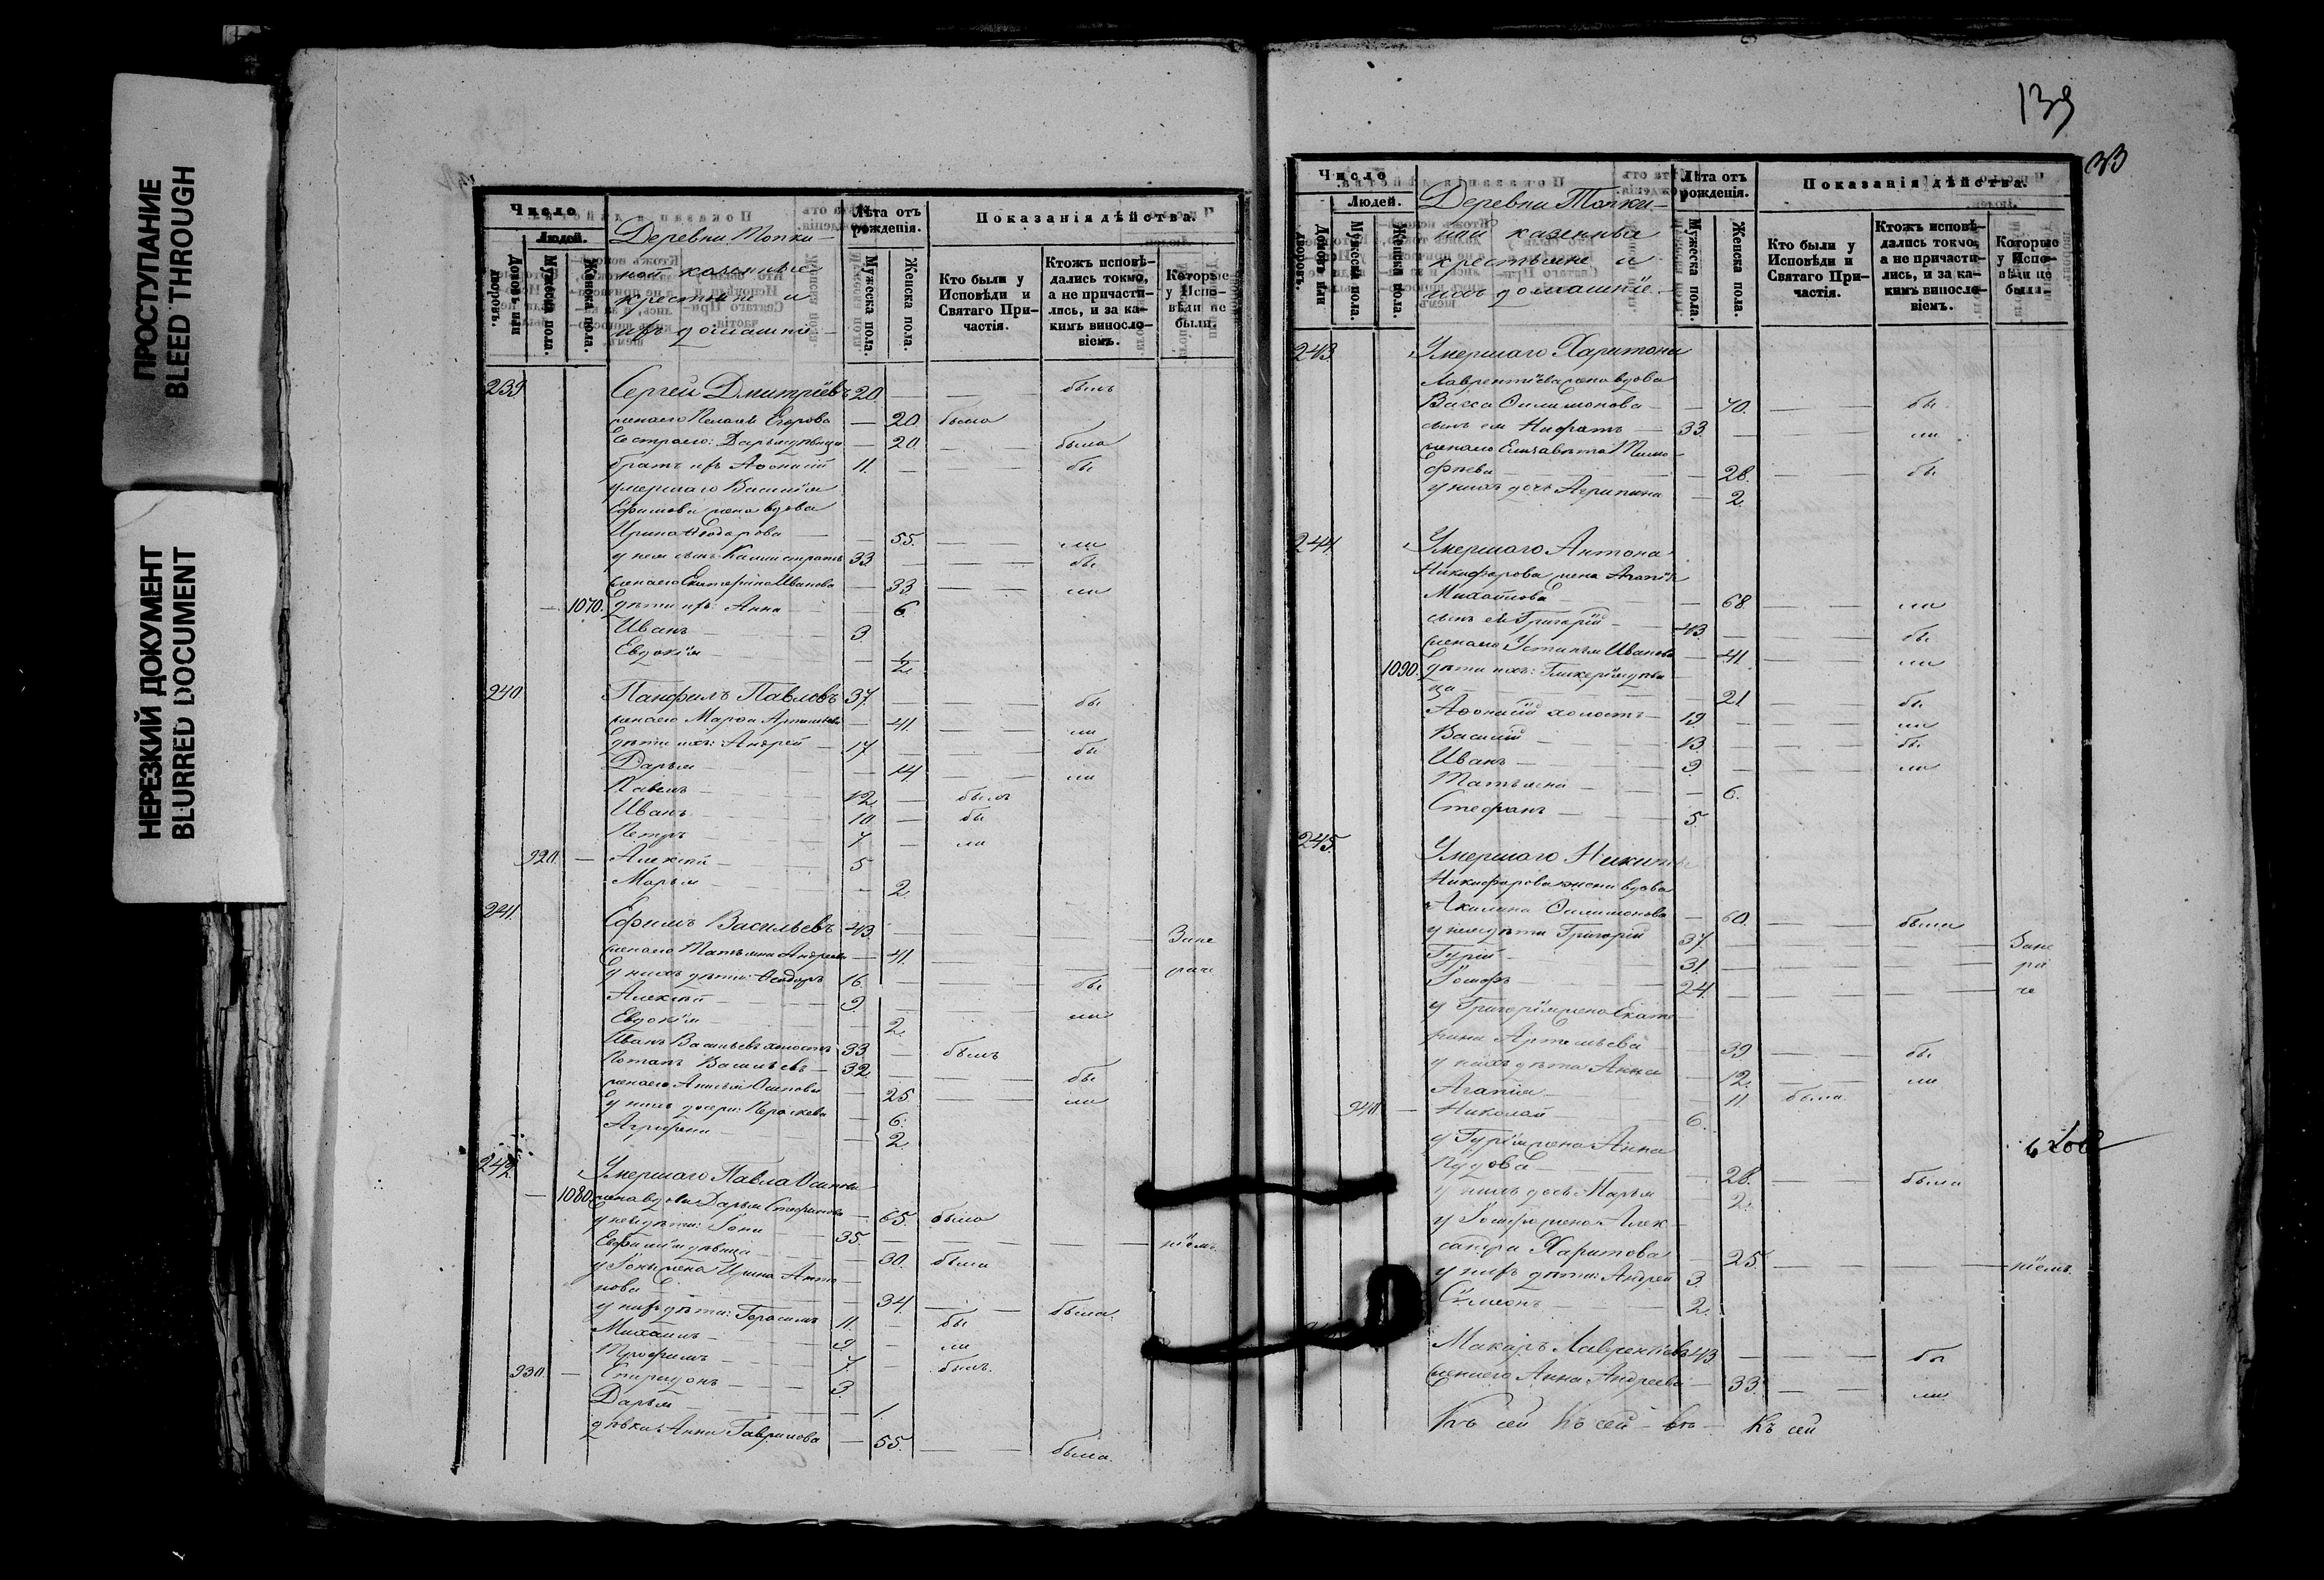 ПРОСТУПАНИЕ
BLEED THROUGH
НЕРЕЗКИЙ ДОКУМЕНТ
BLURRED DOCUMENT
Число
Людей.
Домовъ или дворовъ.
Мужеска пола.
Женска пола.
Деревни Топки-
ной казенные
крестьяне и
ихъ домашніе
Лѣта отъ рожденія.
Мужеска пола.
Женска пола.
Показанія дѣйства.
Кто были у Исповѣди и Святаго При-частія.
Ктожъ исповѣ-дались токмо, а не причасти-лись, и за ка-кимъ винosло-віемъ.
Которые у Испо-вѣди не были.
239 Сергей Дмитріевъ 20 — — былъ
жена его Пелагѣя Егорова — 20 была
Сестра его: Дарья дѣвица — 20 — — была
братъ ихъ Аѳонасій 11 — — — бы
умершаго Василія
Ефимова жена вдова
Ирина Ѳеодорова — 55 — — ли
у нея сынъ Калистратъ 33 — — — бы
жена его Екатерина Иванова — 33 — — ли
1070. дѣти ихъ: Анна — 6
Иванъ — 3
Евдокія — 1/2
240 Панфилъ Павловъ 37 — — — бы
жена его Марѳа — 41 — — ли
дѣти ихъ: Андрей — 17 — — — бы
Дарья — 14 — — ли
Павелъ — 12 — былъ
Иванъ — 10 — бы
Петръ — 7 — ли
920 — Алексѣй — 5
Марья — 2
241. Ефимъ Васильевъ 43 — — — Зане
жена его Татьяна Андреева — 41 — — раче
у нихъ дѣти: Ѳеодоръ 16 — — — бы
Алексѣй — 9 — — — ли
Евдокія — 2
Иванъ Васильевъ холостъ 33 — былъ
Потапъ Васильевъ — 32 — — — бы
жена его Анисья Осипова — 25 — — ли
у нихъ дочери: Парасковья — 6
Агрифена — 2
242 Умершаго Павла Осипова
— 1080 жена вдова Дарья Стефанова — 65 была
у нея дѣти: Іона 35 — — — ніемъ.
дѣвица — 30 была
у Іоны жена Ирина Анто-
нова — 34 — — была.
у нихъ дѣти: Герасимъ 11 — бы
Михаилъ — 9 — ли
Трофимъ — 7 — былъ.
930 — Спиридонъ — 3
Дарья — 1
дѣвка Анна Гаврилова — 55 — — была.
139
33
Число
Людей.
Домовъ или дворовъ.
Мужеска пола.
Женска пола.
Деревни Топки-
ной казенные
крестьяне и
ихъ домашніе
Лѣта отъ рожденія.
Мужеска пола.
Женска пола.
Показанія дѣйства.
Кто были у Исповѣди и Святаго При-частія.
Ктожъ исповѣ-дались токмо, а не причасти-лись, и за ка-кимъ винosло-віемъ.
Которые у Испо-вѣди не были.
243 Умершаго Харитона
Лаврентіева жена вдова
Васса Филимонова — 70 — — бы
сынъ ея — 33 — — ли
жена его Елизавета Тимо-
фѣева — 28 — — бы
у нихъ дочь Агрипина — 2
244 Умершаго Антона
Никифорова жена Агапія
Михайлова — 68 — — ли
сынъ ея Григорій — 43 — — бы
жена его Устинья Иванова — 41 — — ли
1090 дѣти ихъ: Гликерія дѣви-
ца — 21 — — бы
Аѳонасій холостъ — 19 — — ли
Василій — 13 — — бы
Иванъ — 9 — — ли
Татьяна — 6
Стефанъ — 5
245 Умершаго Никиты
Никифорова жена вдова
Акилина Филимонова — 60 — — была
у нея дѣти Григорій 37 — — — Зане
Гурій — 31 — — — ра
Іосифъ — 24 — — — че
у Григорія жена Екате-
рина Артемьева — 39 — — бы
у нихъ дѣти Анна — 12 — — ли
Агапія — 11 была
940 — Николай — 6
у Гурія жена Анна
— 28 — — была
у нихъ дочь Марья — 2
у Іосифа жена Алек-
сандра Харитова — 25 — — ніемъ.
у нихъ дѣти: Андрей 3
Симеонъ — 2
Макаръ Лаврентіевъ 43 — — бы
жена его Анна Андреева — 33 — — ли
Къ сей Къ сей — Къ сей